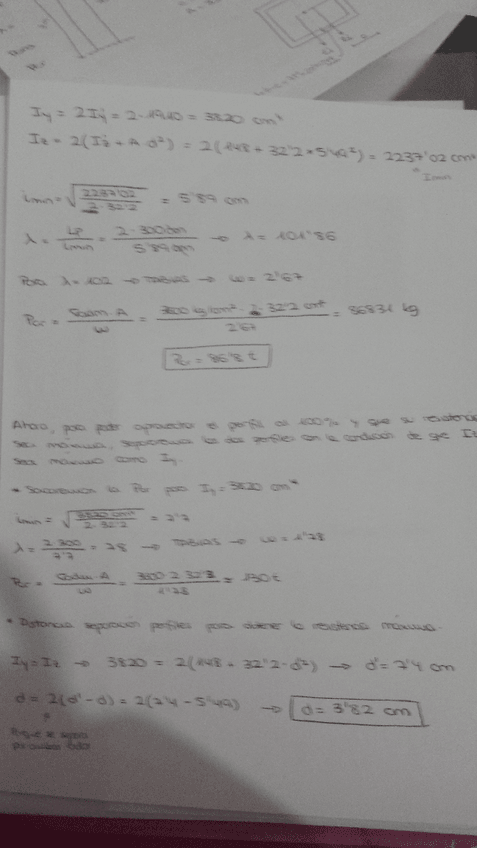 Iy = 2Iy' = 2·1910 = 3820 cm⁴
Iz = 2(Iz' + A·d²) = 2(148 + 32'2·5'49²) = 2237'02 cm⁴
Imin
imin = √(2237'02 / 2·32'2) = 5'89 cm
λ = Lp / imin = 2·300cm / 5'89cm → λ = 101'86
Para λ = 102 → TABLAS → w = 2'67
Pcr = σadm·A / w = 3600 kg/cm²·2·32'2 cm² / 2'67 = 86831 kg
Pcr = 86'8 t
Ahora, para poder aprovechar el perfil al 100% y que la resistencia
sea máxima, separaremos los dos perfiles con la condición de que Iz
sea máximo como Iy.
* la Pcr para Iy = 3820 cm⁴
imin = √(3820 cm⁴ / 2·32'2) = 7'7
λ = 2·300 / 7'7 = 78 → TABLAS → w = 1'78
Pcr = σadm·A / w = 3600·2·32'2 / 1'78 = 130t
* Distancia separación perfiles para obtener la resistencia máxima.
Iy = Iz → 3820 = 2(148 + 32'2·d²) → d' = 7'4 cm
d = 2(d' - d) = 2(7'4 - 5'49) → d = 3'82 cm